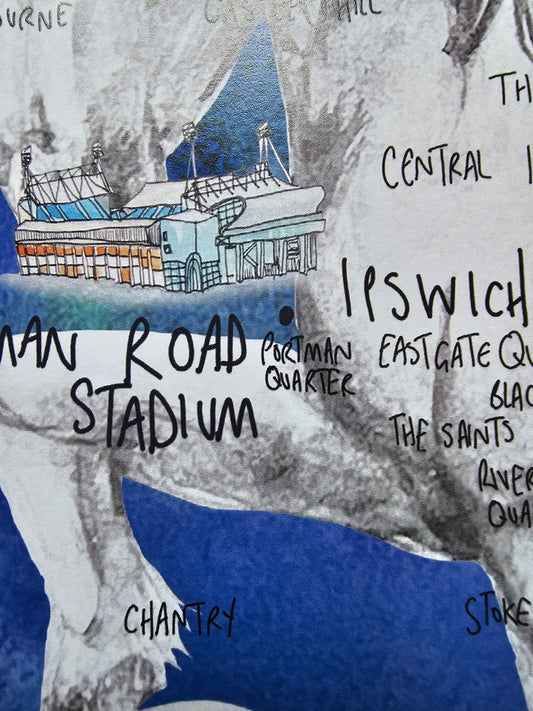 OURNE
CASTLE HILL
TH
CENTRAL I
IPSWICH
MAN ROAD
STADIUM
PORTMAN
QUARTER
EASTGATE QU
BLAC
THE SAINTS
RIVER
QUA
CHANTRY
STOKE